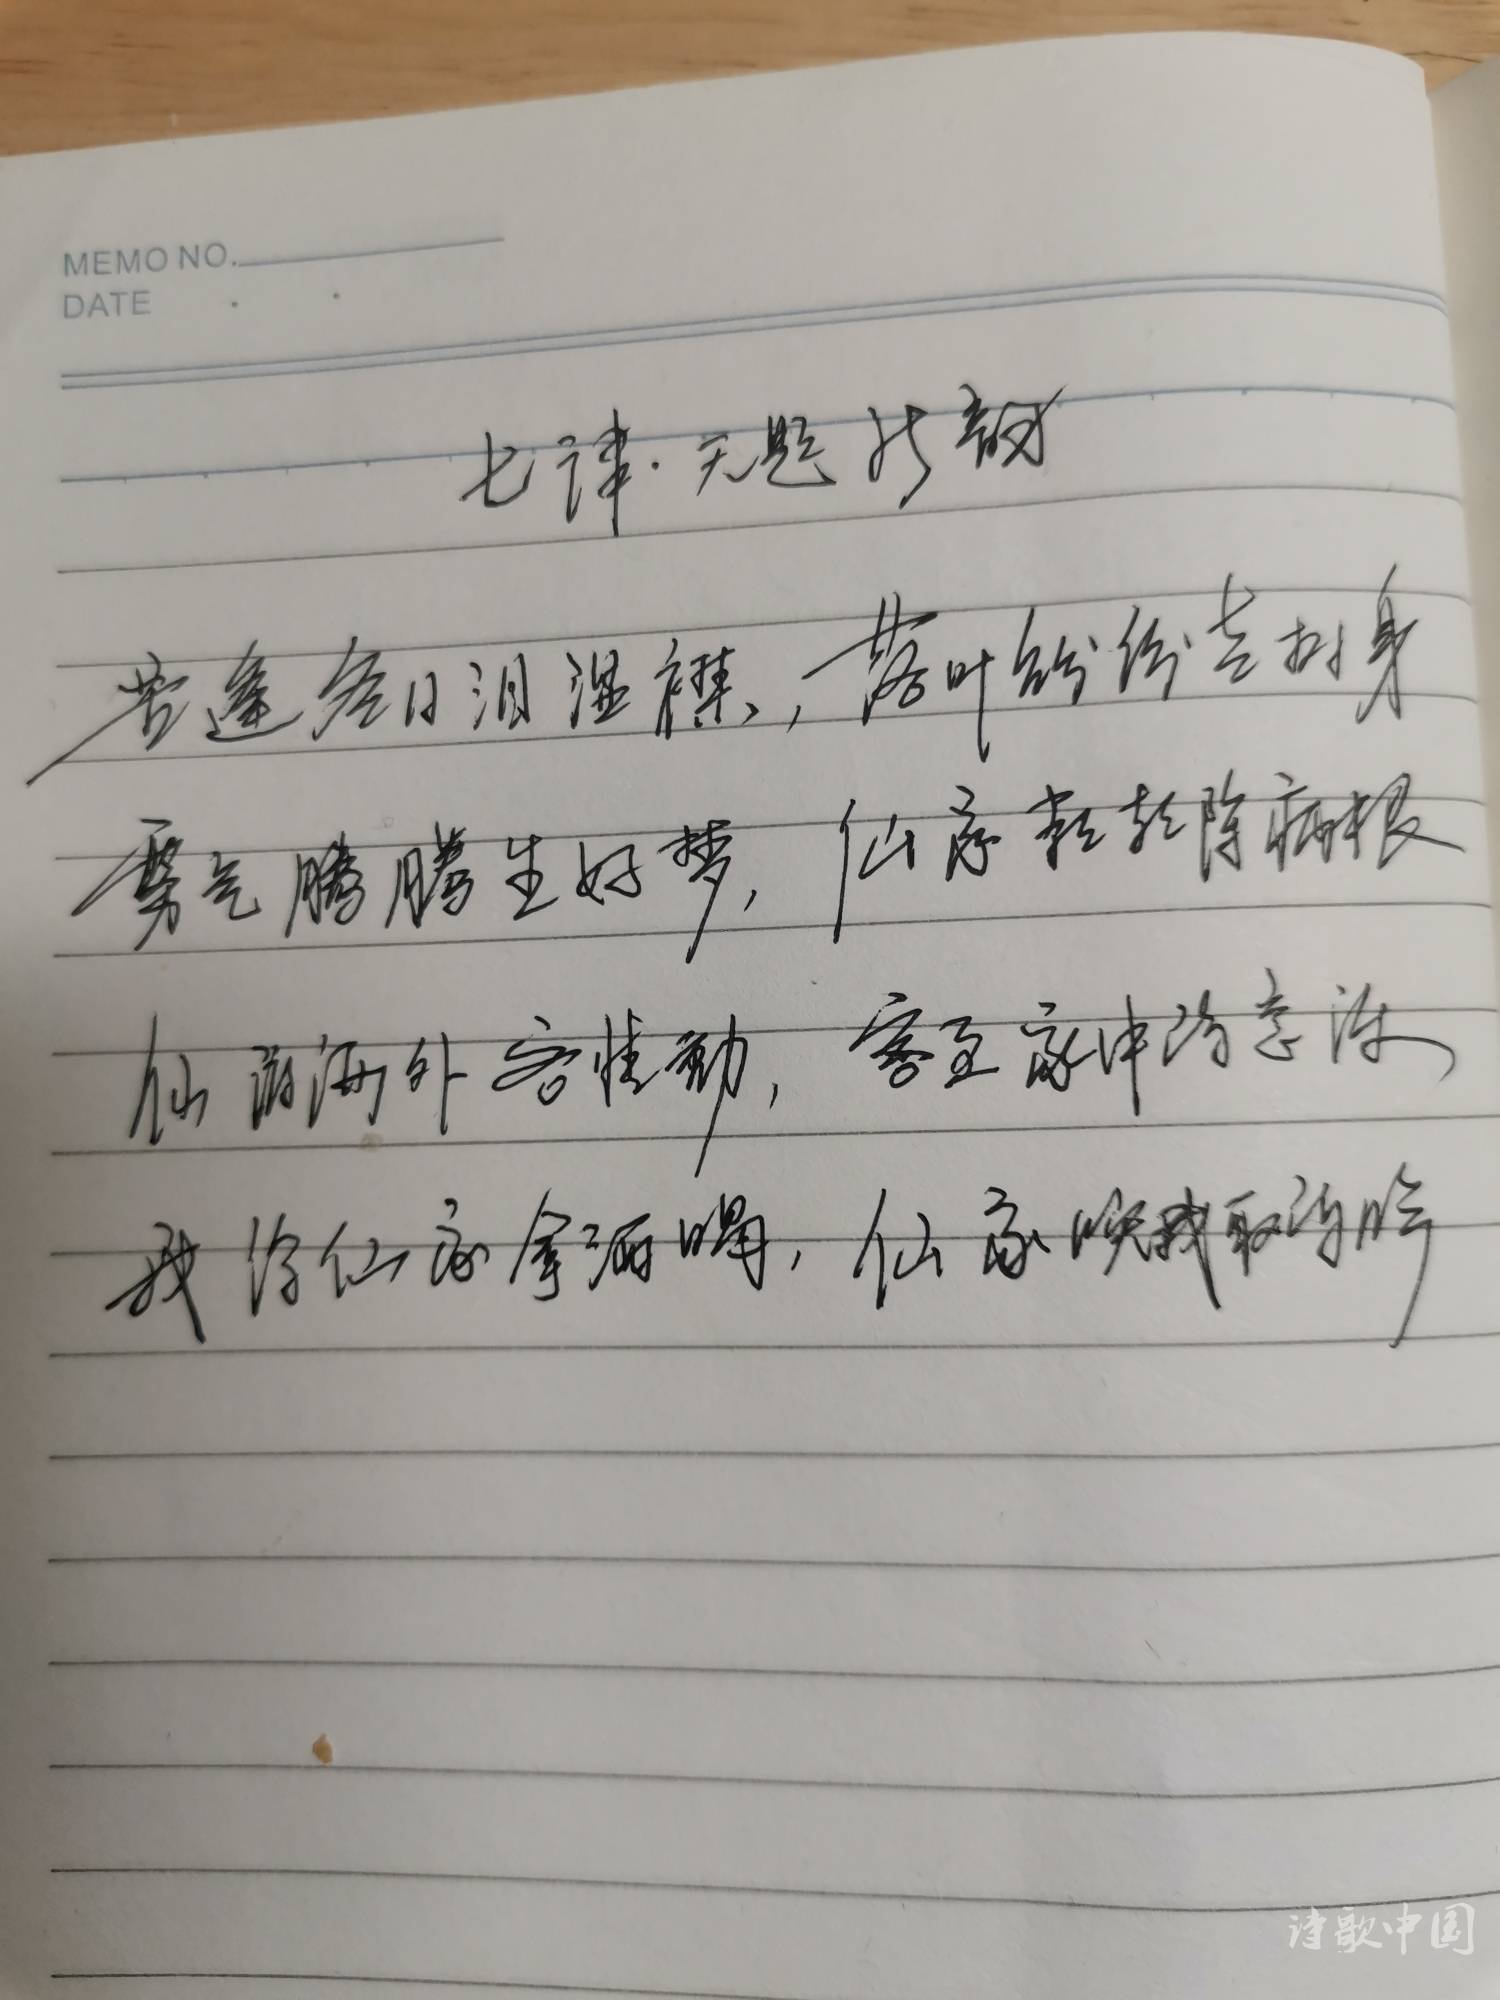 MEMO NO.
DATE
七律·无题 新韵
苦逢冬日泪湿襟，落叶纷纷去扑身
雾气腾腾生好梦，仙家轻轻除病根
仙游海外客情动，客至家中诗意深
我给仙家拿酒喝，仙家唤我取诗吟
诗歌中国